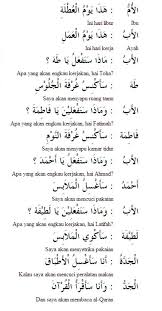 الأُمُّ : هَذَا يَوْمُ الْعُطْلَةِ
Ibu Ini hari libur
الأَبُ : هَذَا يَوْمُ الْعَمَلِ
Ayah Ini hari kerja
الأَبُ : وَمَاذَا سَتَفْعَلُ يَا طَهَ ؟
Apa yang akan engkau kerjakan, hai Toha?
طَهَ : سَأَكْنُسُ غُرْفَةَ الْجُلُوْسِ
Saya akan menyapu ruang tamu
الأَبُ : وَمَاذَا سَتَفْعَلِيْنَ يَا فَاطِمَةُ ؟
Apa yang akan engkau kerjakan, hai Fatimah?
فَاطِمَةُ : سَأَكْنُسُ غُرْفَةَ النَّوْمِ
Saya akan menyapu kamar tidur
الأَبُ : وَمَاذَا سَتَفْعَلُ يَا أَحْمَدُ ؟
Apa yang akan engkau kerjakan, hai Ahmad?
أَحْمَدُ : سَأَغْسِلُ الْمَلَابِسَ
Saya akan mencuci pakaian
الأَبُ : وَمَاذَا سَتَفْعَلِيْنَ يَا لَطِيْفَةُ ؟
Apa yang akan engkau kerjakan, hai Latifah?
لَطِيْفَةُ : سَأَكْوِي الْمَلَابِسَ
Saya akan menyetrika pakaian
الْجَدَّةُ : أَنَا سَأَغْسِلُ الْأَطْبَاقَ
Kalau saya akan mencuci peralatan makan
الْجَدُّ : وَأَنَا سَأَقْرَأُ الْقُرْآنَ
Dan saya akan membaca al-Quran